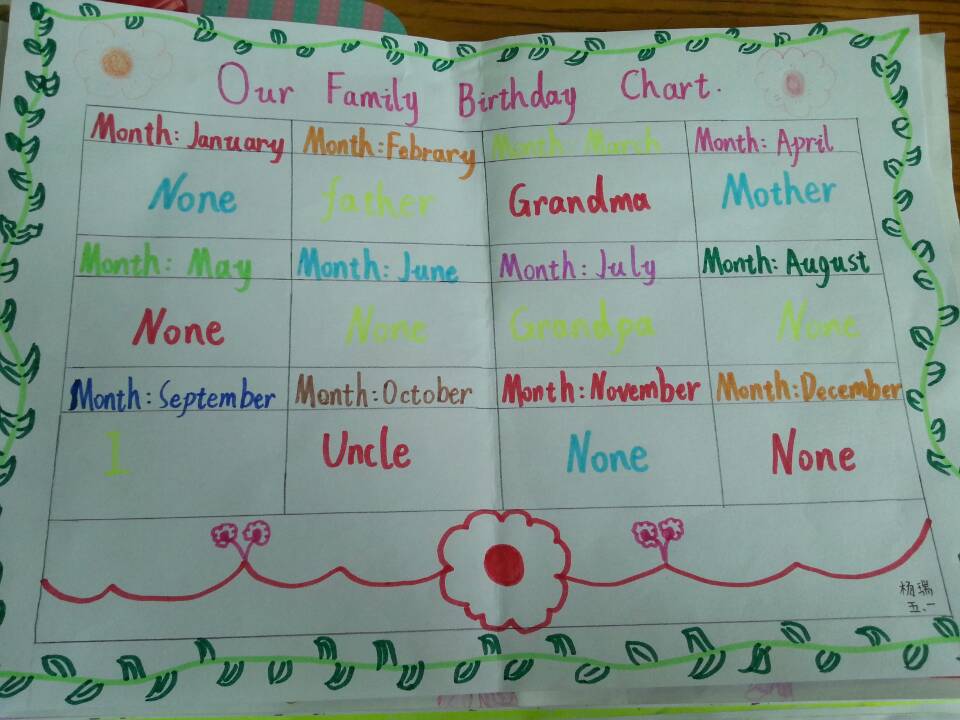 Our Family Birthday Chart.
Month: January Month: Febrary Month: March Month: April
None father Grandma Mother
Month: May Month: June Month: July Month: August
None None Grandpa None
Month: September Month: October Month: November Month: December
I Uncle None None
杨瑞
五.一